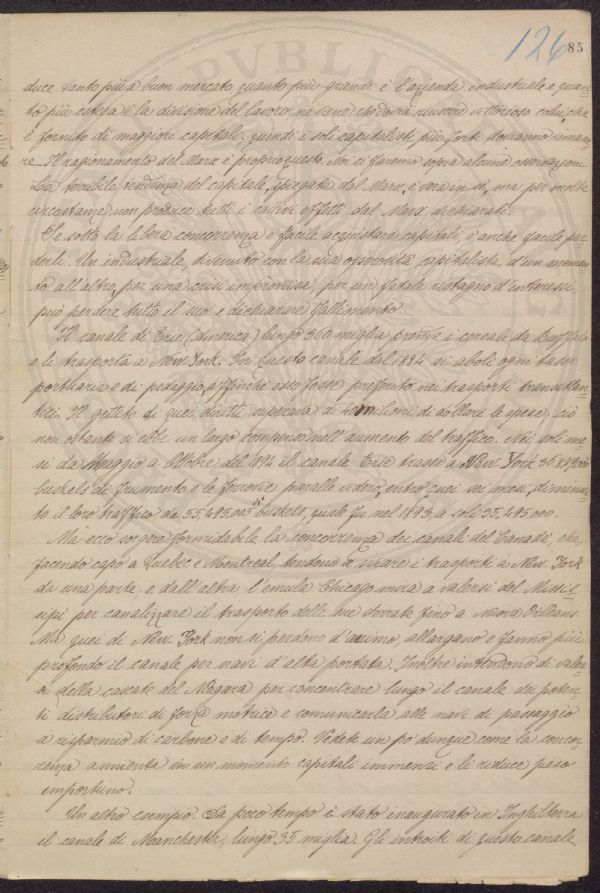 126 85
duce tanto più a buon mercato quanto più grande è l'azienda industriale e quan-
to più estesa è la divisione del lavoro, ne viene che dovrà riuscire vittorioso colui che
è fornito di maggiori capitali, quindi i soli capitalisti più forti dovranno rimane-
re. Il ragionamento del Marx è proprio questo. Noi ci faremo sopra alcune osservazioni.
La terribile tendenza del capitale, spiegata dal Marx, è vera in sè, ma per molte
circostanze non produce tutti i cattivi effetti dal Marx dichiarati.
Se sotto la libera concorrenza è facile acquistare capitali, è anche facile per-
derli. Un industriale, divenuto con la sua operosità capitalista, d'un momen-
to all'altro, per una crisi improvvisa, per un fatale ristagno d'interessi
può perdere tutto il suo e dichiarare fallimento.
Il canale di Erie (America) lungo 360 miglia preleva i cereali da Buffalo
e li trasporta a New York. In questo canale dal 1884 si abolì ogni tassa
portuaria e di pedaggio, affinchè esso fosse preferito nei trasporti transatlan-
tici. Il gettito di quei diritti superava di 40 milioni di dollari le spese. Ciò
non ostante si ebbe un largo compenso nell'aumento del traffico. Nei soli me-
si da Maggio a Ottobre del 1894 il canale Erie trasse a New York
bushels di frumento e le ferrovie parallele videro, entro quei sei mesi, diminui-
to il loro traffico da 55,495,005 di bushels, quale fu nel 1893, a soli 35,495,000.
Ma ecco sorgere formidabile la concorrenza dei canali del Canadà, che,
facendo capo a Quebec e Montreal, tendono a sviare i trasporti a New York
da una parte, e dall'altra l'emula Chicago mira a valersi del Missis-
sipi per canalizzare il trasporto delle sue derrate fino a Nuova Orleans.
Ma quei di New York non si perdono d'animo, allargano e fanno più
profondo il canale per navi d'alta portata. Inoltre intendono di valer-
si della cascate del Niagara per concentrare lungo il canale dei poten-
ti distributori di forza motrice e comunicarla alle navi di passaggio
a risparmio di carbone e di tempo. Vedete un po' dunque come la concor-
renza annienta in un momento capitali immensi e li riduce peso
importuno.
Un altro esempio. Da poco tempo è stato inaugurato in Inghilterra
il canale di Manchester, lungo 35 miglia. Gli introiti di questo canale